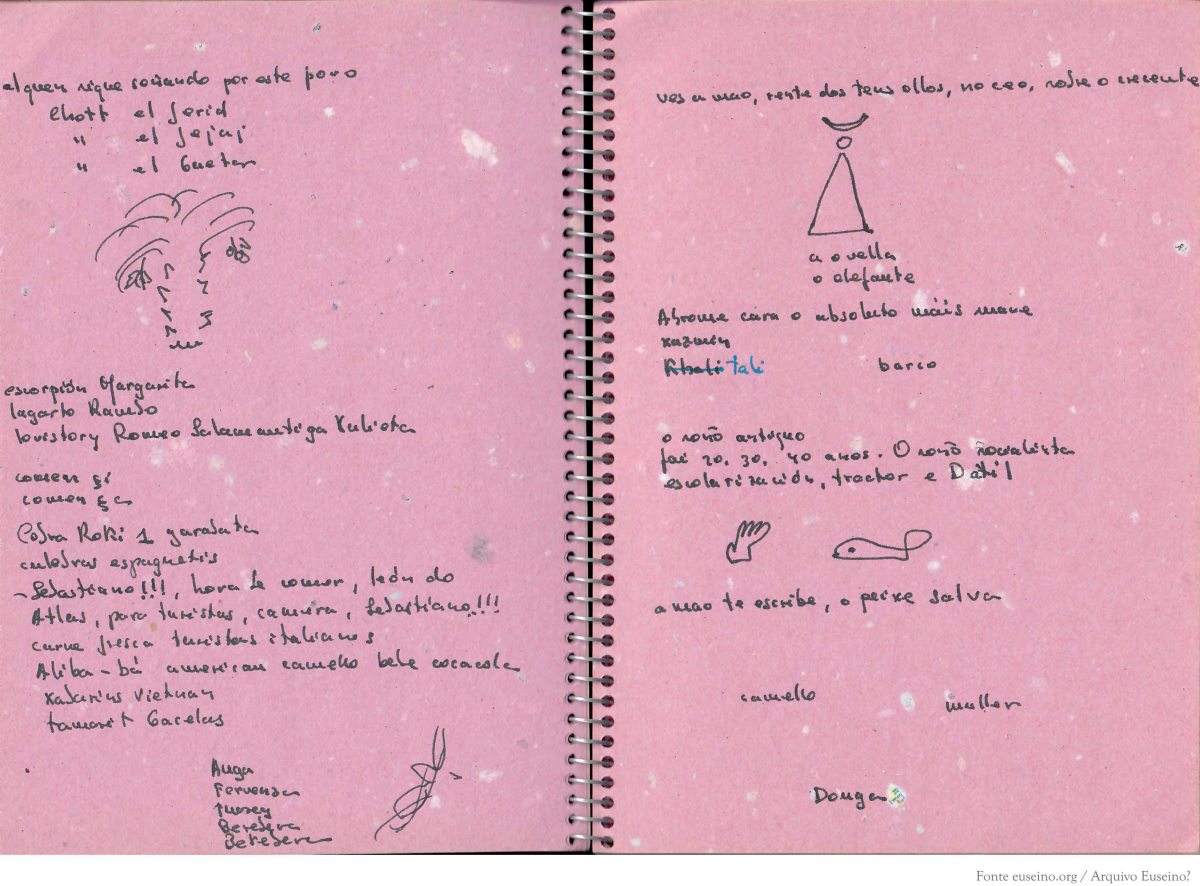 alguen sigue soñando por este povo
Chott el Jerid
" el Jejaj
" el Guetar
escorpión Margarita
lagarto Rambo
lovestory Romeo Salamantiga Xulieta
comen çi
comen ça
Cobra Roki 1 garabata
culebras espaguetis
- Sebastiano!!!, hora de comer, león do
Atlas, para turistas, camera, Sebastiano!!!
carne fresca turistas italianos
Aliba-bá american camello bebe cocacola
Vietnam
tamarit Gacelas
Auga
Fervenza
Beredera
Beredera
ves a mao, rente dos teus ollos, no ceo, sobre o crecente
a ovella
o elefante
Abrome cara o absoluto máis suave
xazmín
tali
barco
o soño antiguo
fai 20, 30, 40 anos. O soño socialista
escolarización, tractor e Dátil
a mao te escribe, o peixe salva
camello
muller
Donga
Fonte euseino.org / Arquivo Euseino?